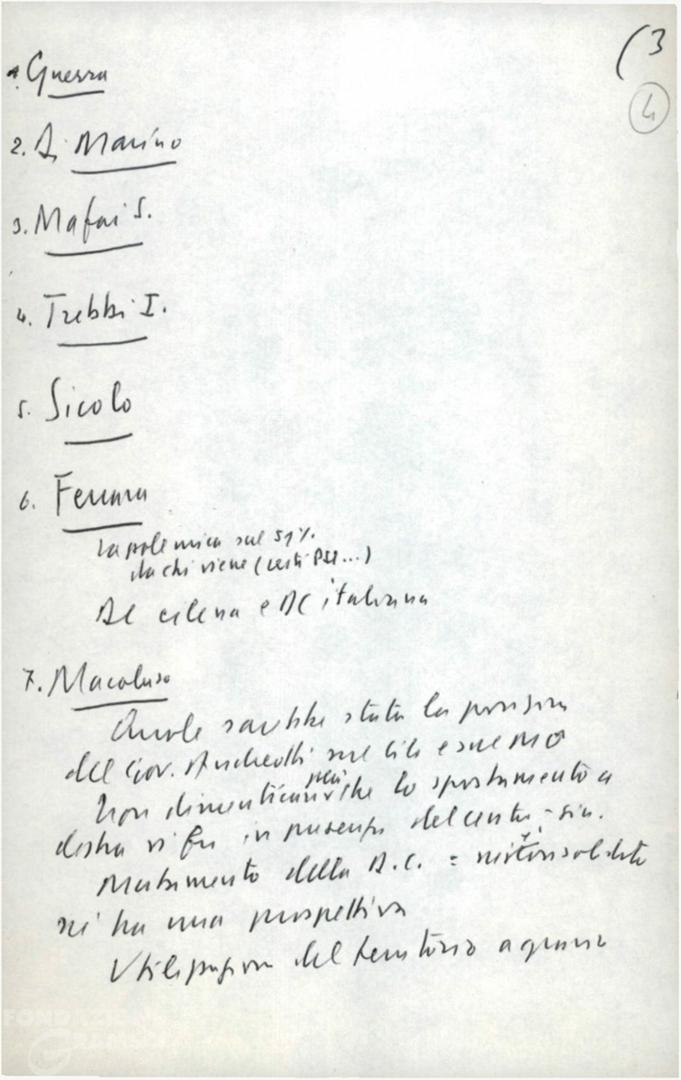 (3
4
1. Guerra
2. Di Marino
3. Mafai S.
4. Trebbi I.
5. Sicolo
6. Ferrara
La polemica sul 51%
da chi viene (certi PSI...)
DC cilena e DC italiana
7. Macaluso
Quale sarebbe stata la posizione
del Gov. Andreotti sul Cile e sul MO
Non dimenticare che lo spostamento a
destra vi fu in presenza del centro-sin.
Mutamento della D.C. =
si ha una prospettiva
Utilizzazione del territorio agrario
FONDAZIONE
GRAMSCI